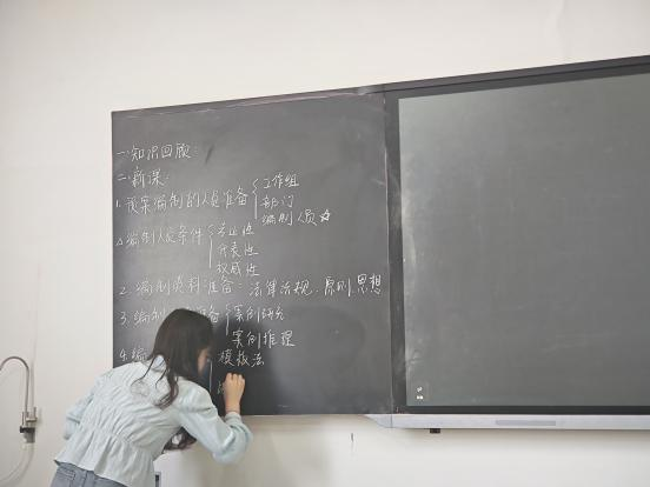 一.知识回顾:
二.新课:
1. 预案编制的人员准备 { 工作组
部门
编制人员 ☆
△编制人员条件 { 公正性
代表性
权威性
2. 编制资料准备: 法律法规、原则、思想
3. 编制 准备 { 案例研究
案例推理
4. 编 模板法